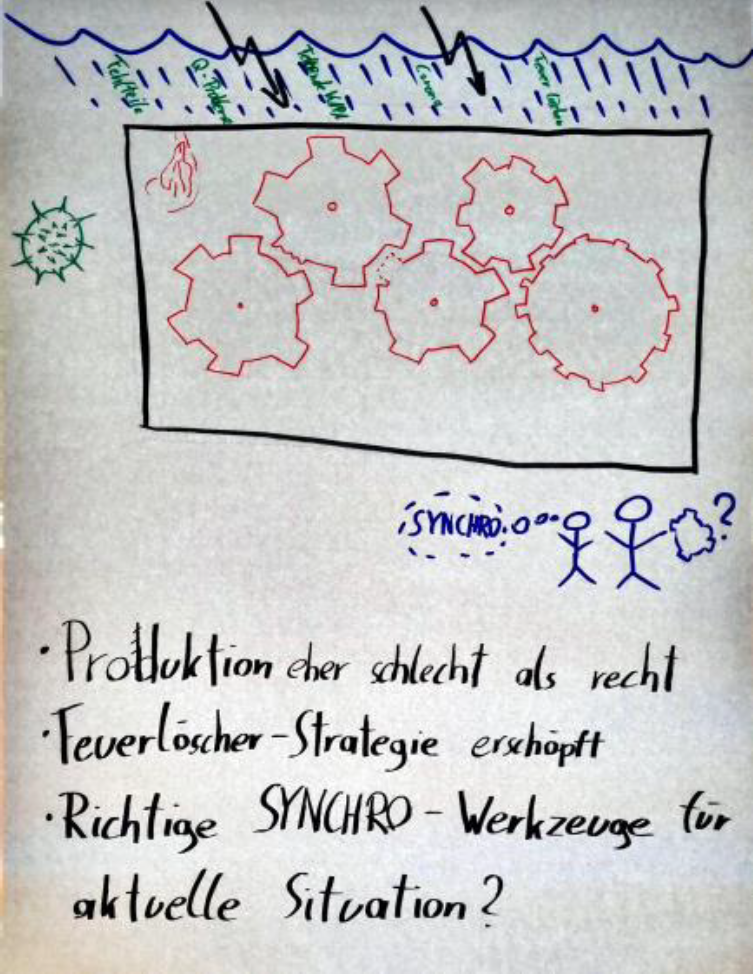 Fehlteile
Q-Probleme
Corona
SYNCHRO
?
· Produktion eher schlecht als recht
· Feuerlöscher-Strategie erschöpft
· Richtige SYNCHRO-Werkzeuge für
aktuelle Situation?